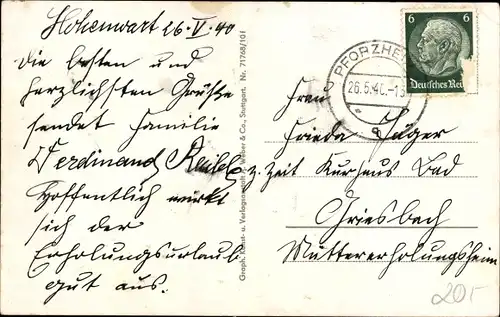 Hohenwart 26.V.40
Die besten und
herzlichsten Grüße
sendet Familie
Ferdinand
Hoffentlich wirkt
sich der
Erholungsurlaub
gut aus.
Graph. Kunst- u. Verlagsanstalt Weber & Co., Stuttgart. Nr. 71768/101
PFORZHE
26.5.40.-13
a
6 6
Deutsches Rei
Frau
Frieda Jäger
z. Zeit Kurhaus Bad
Griesbach
Müttererholungsheim
20.-